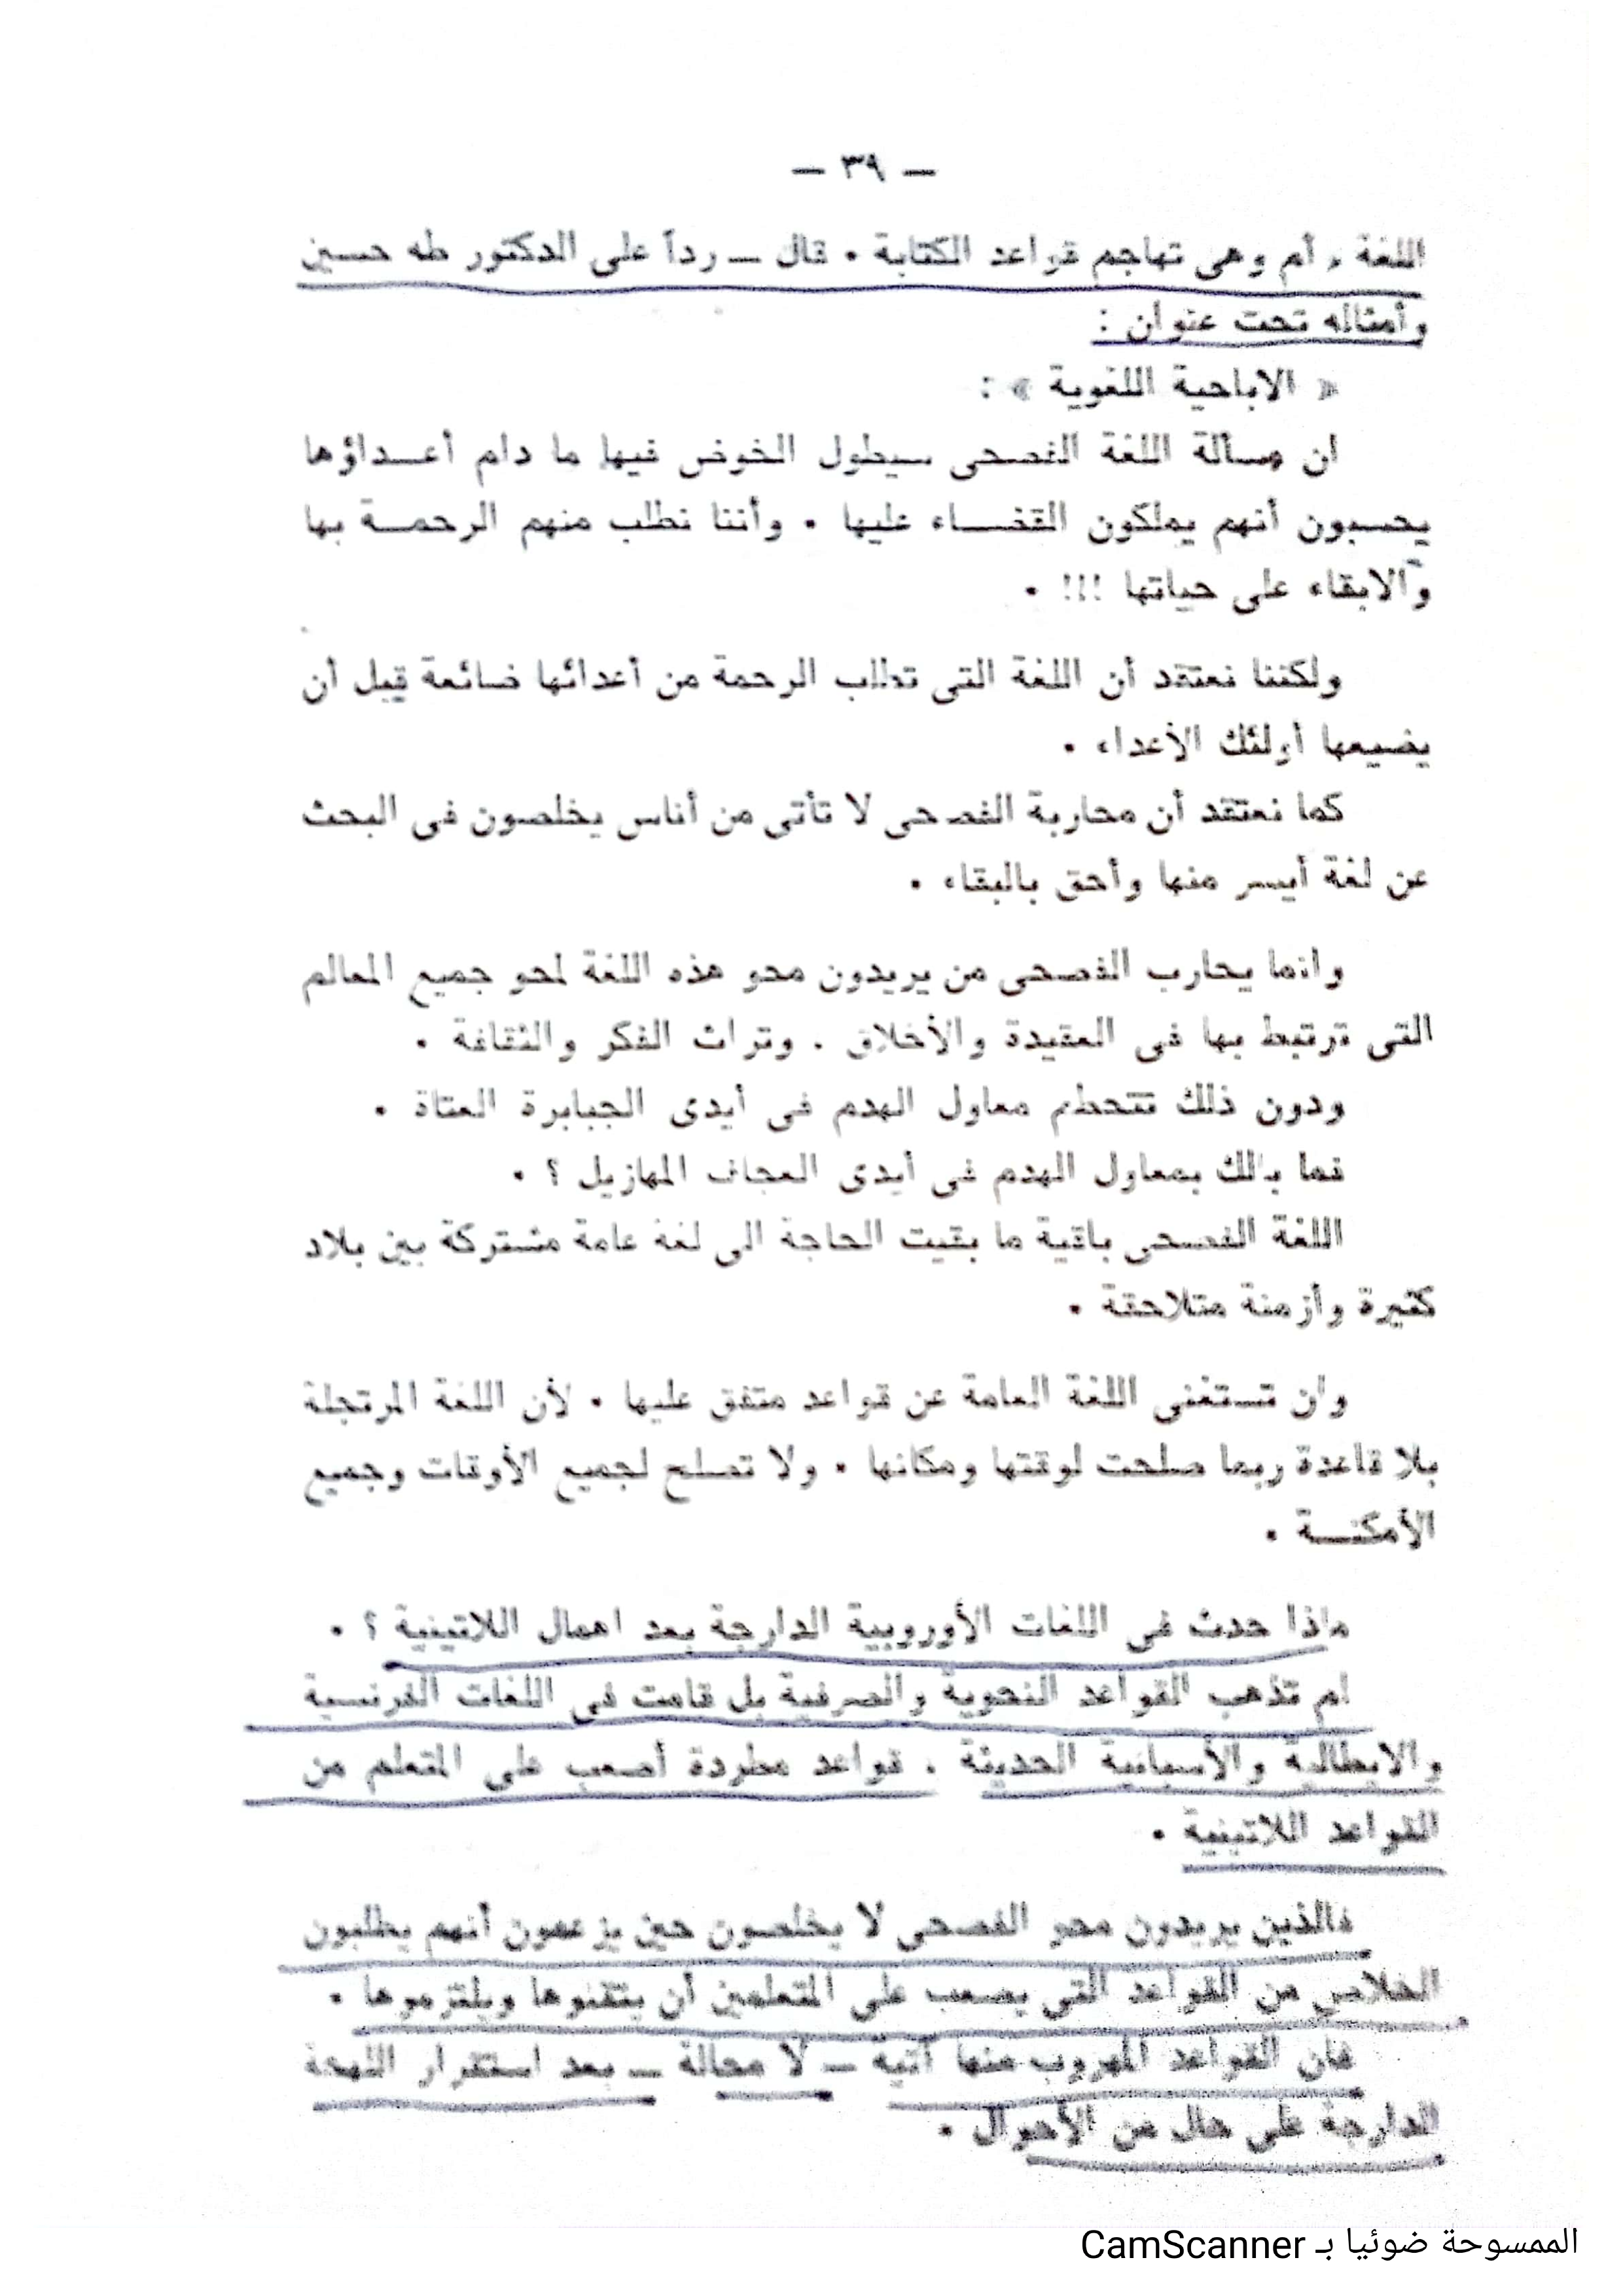 — ٣٩ —
اللغة ، أم وهى تهاجم قواعد الكتابة • قال — رداً على الدكتور طه حسين
وأمثاله تحت عنوان :
« الاباحية اللغوية » :
ان مسألة اللغة الفصحى سيطول الخوض فيها ما دام أعــداؤها
يحسبون أنهم يملكون القضــاء عليها • وأننا نطلب منهم الرحمــة بها
والابقاء على حياتها !!! •
ولكننا نعتقد أن اللغة التى تطلب الرحمة من أعدائها ضائعة قبل أن
يضيعها أولئك الأعداء •
كما نعتقد أن محاربة الفصحى لا تأتى من أناس يخلصون فى البحث
عن لغة أيسر منها وأحق بالبقاء •
وانما يحارب الفصحى من يريدون محو هذه اللغة لمحو جميع المعالم
التى ترتبط بها فى العقيدة والأخلاق . وتراث الفكر والثقافة •
ودون ذلك تتحطم معاول الهدم فى أيدى الجبابرة العتاة •
فما بالك بمعاول الهدم فى أيدى العجاف المهازيل ؟ •
اللغة الفصحى باقية ما بقيت الحاجة الى لغة عامة مشتركة بين بلاد
كثيرة وأزمنة متلاحقة •
ولن تستغنى اللغة العامة عن قواعد متفق عليها • لأن اللغة المرتجلة
بلا قاعدة ربما صلحت لوقتها ومكانها • ولا تصلح لجميع الأوقات وجميع
الأمكنــة •
ماذا حدث فى اللغات الأوروبية الدارجة بعد اهمال اللاتينية ؟ •
لم تذهب القواعد النحوية والصرفية بل قامت فى اللغات الفرنسية
والايطالية والأسبانية الحديثة . قواعد مطردة أصعب على المتعلم من
القواعد اللاتينية •
فالذين يريدون محو الفصحى لا يخلصون حين يزعمون أنهم يطلبون
الخلاص من القواعد التى يصعب على المتعلمين أن يتقنوها ويلتزموها •
فان القواعد المهروب منها آتية — لا محالة — بعد استقرار اللهجة
الدارجة على حال من الأحوال •
الممسوحة ضوئيا بـ CamScanner